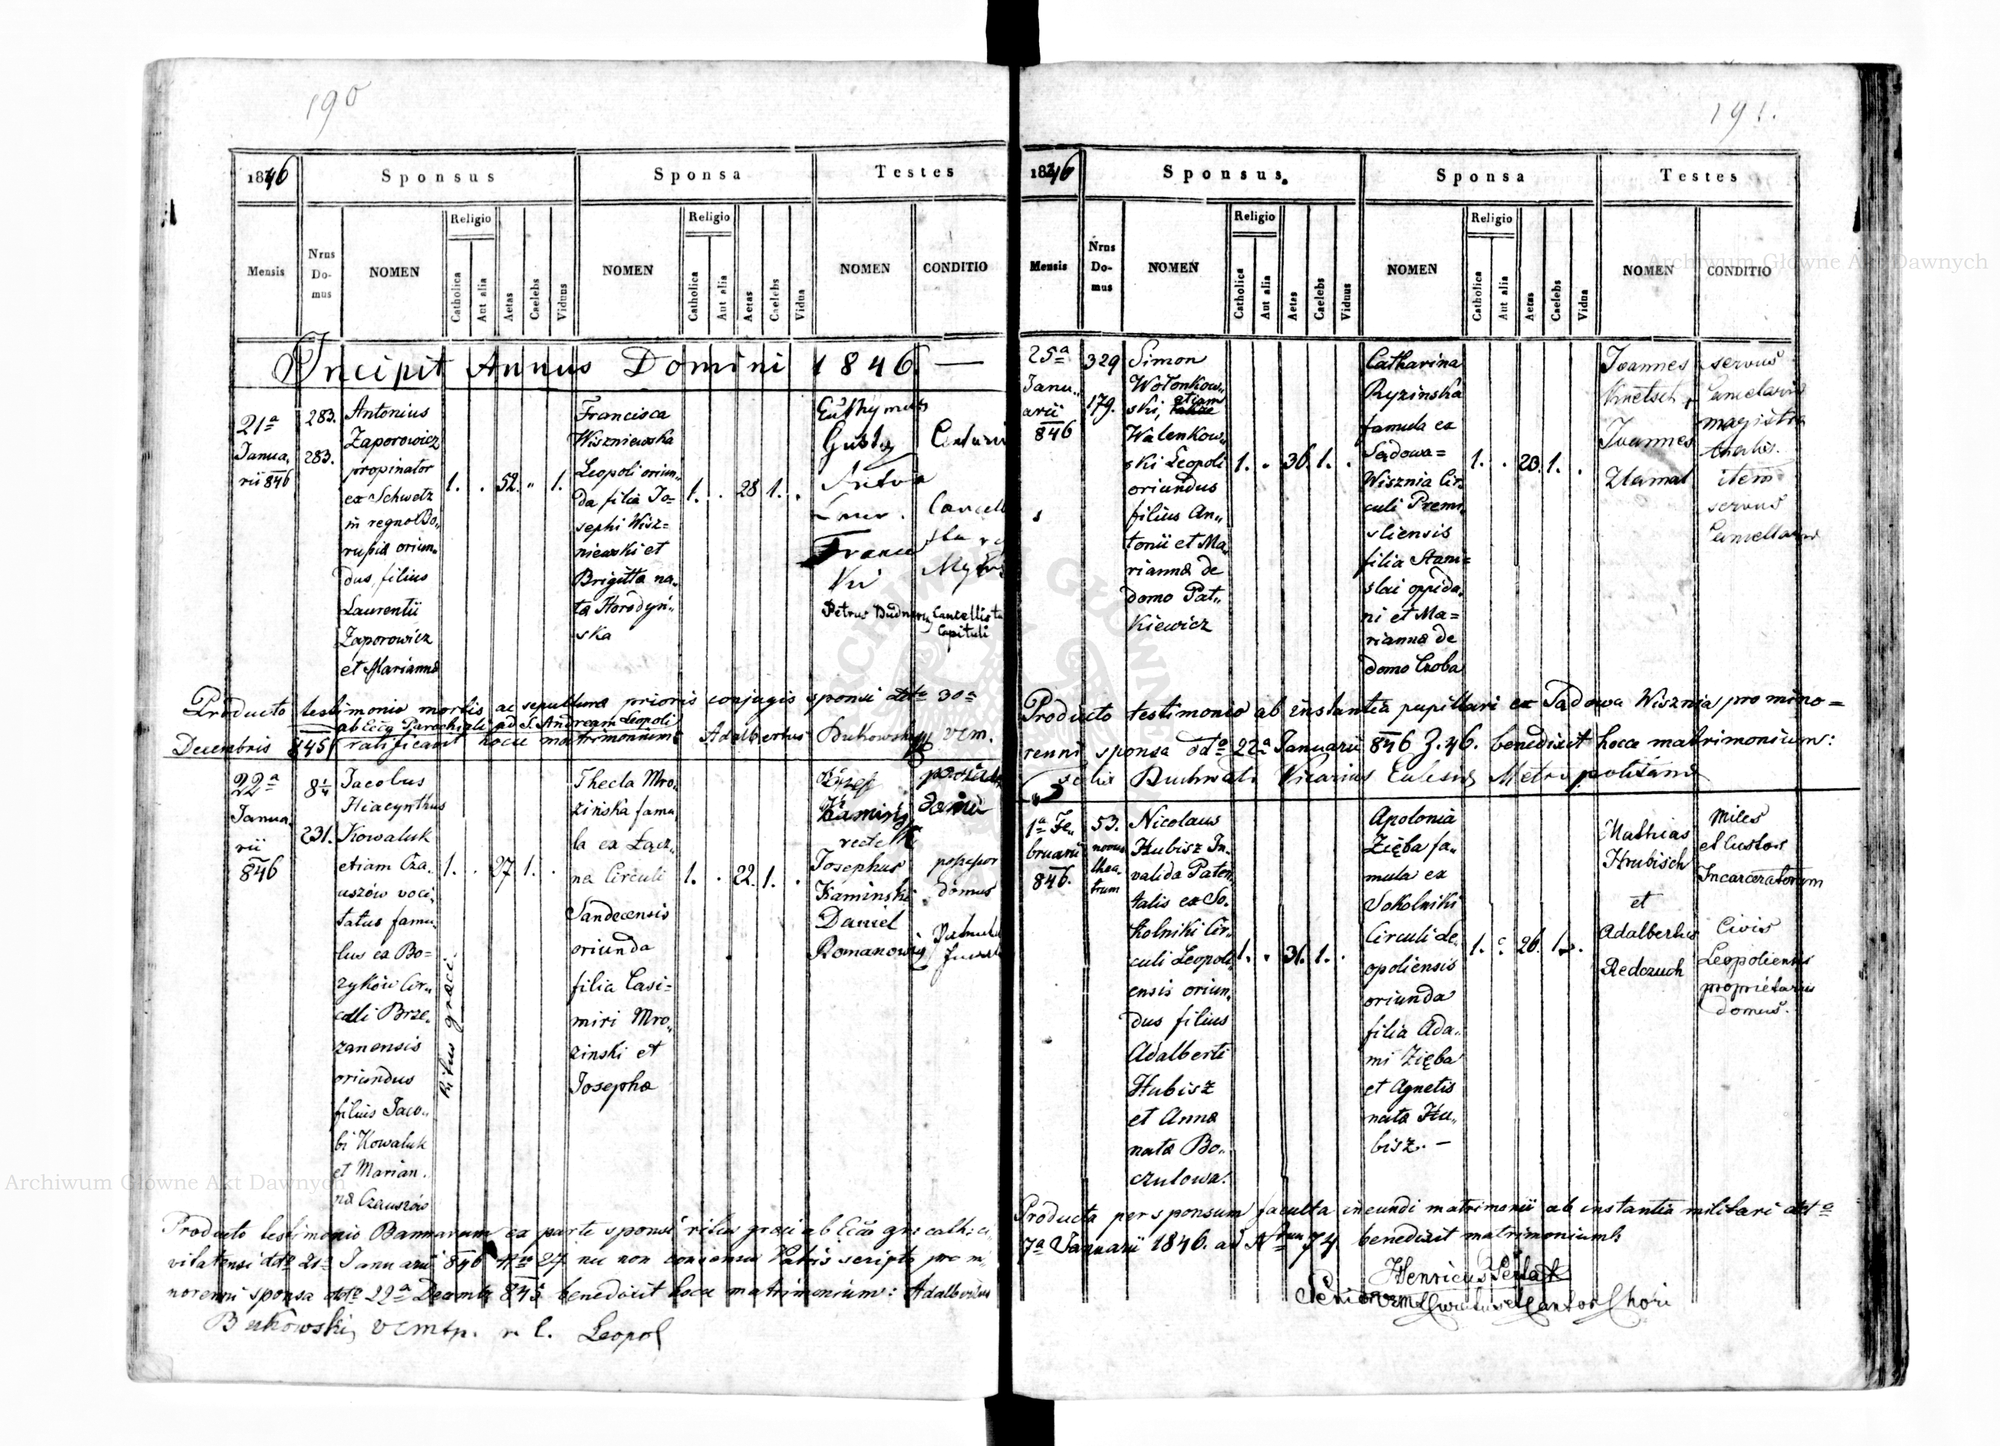 190
1846
Sponsus
Sponsa
Testes
Mensis
Nrus Do-mus
NOMEN
Religio
Catholica
Aut alia
Aetas
Caelebs
Viduus
NOMEN
Religio
Catholica
Aut alia
Aetas
Caelebs
Vidua
NOMEN
CONDITIO
Incipit Annus Domini 1846 —
21ª
Janua,
rii 846
283.
283.
Antonius
Zaporowicz
propinator
ex Schwetz
in regno Bo,
rupia oriun,
dus, filius
Laurentii
Zaporowicz
et Marianna
1. . 52. " 1.
Francisca
Wiszniewska
Leopoli oriun,
da filia Jo-
sephi Wisz=
niewski et
Brigitta na,
ta Horodyń-
ska
1. . 28 1. .
Petrus
Cancellista
Capituli
Producto testimonio mortis ac sepultura prioris conjugis sponsi ddto 30ª
ab Ecclã Parochiali ad S. Andream Leopoli
Decembris 845 ratificavit hocce matrimonium: Adalbertus Bukowski vcm.
22ª
Janua,
rii
846
8 1/4
231.
Jacobus
Hiacynthus
Kowaluk
etiam Cza,
uszów voci,
tatus famu,
lus ex Bo=
zyków Cir,
culi Brze,
zanensis
oriundus
filius Jaco,
bi Kowaluk
et Marian,
na Czauszów
Ritus graeci.
1. . 27. 1. .
Thecla Mro,
zinska famu,
la ex Łącz,
na Circuli
Sandecensis
oriunda
filia Casi-
miri Mro,
zinski et
Josepha
1. . 22. 1. .
Józef
Kaminś
recte
Josephus
Kaminski
Daniel
Romanowicz
domu
domus
Producto testimonio Bannorum ex parte sponsi ritus graeci ab Ecclã gr: cath: ci,
vitatensi ddto 21ª Januarii 846 Nro 27 nec non consensu Patris scripto pro mi,
norenni sponsa ddto 22ª Decembr 845 benedixit hocce matrimonium: Adalbertus
Bukowski, vcmtp. r. l. Leopol
191.
1846
Sponsus.
Sponsa
Testes
Mensis
Nrus Do-mus
NOMEN
Religio
Catholica
Aut alia
Aetas
Caelebs
Viduus
NOMEN
Religio
Catholica
Aut alia
Aetas
Caelebs
Vidua
NOMEN
CONDITIO
25ª
Janu,
arii
846
329
179.
Simon
Wolonkow,
ski, etiam
Walenkow,
ski Leopoli
oriundus
filius An,
tonii et Ma,
rianna de
domo Pat,
kiewicz
1. . 36. 1. .
Catharina
Ryzinska
famula ex
Sadowa=
Wisznia Cir,
culi Premi,
sliensis
filia Stani=
slai oppida,
ni et Ma=
rianna de
domo Czoba
1. . 23. 1. .
Joannes
Knetsch,
Joannes
servus
magistra
item
servus
Producto testimonio ab instantia pupillari ex Sadowa Wisznia pro mino=
renni sponsa ddto 22ª Januarii 846 Z. 46. benedixit hocce matrimonium:
Felix Buchwald Vicarius Ecclesia Metropolitana
1ª Fe,
bruarii
846.
53.
novum
thea,
trum
Nicolaus
Hubisz In,
valida Paten,
talis ex So,
kolniki Cir,
culi Leopoli,
ensis oriun,
dus filius
Adalberti
Hubisz
et Anna
nata Bo,
czulowa.
1. . 31. 1. .
Apolonia
Zięba fa,
mula ex
Sokolniki
Circuli Le,
opoliensis
oriunda
filia Ada,
mi Zięba
et Agnetis
nata Hu,
bisz. —
1. 26.
Mathias
Hrubisch
et
Adalbertus
Redczuch
Miles
et Custos
Incarceratorum
Civis
Leopoliensis
proprietarius
domus.
Producta per sponsum faculta ineundi matrimonii ab instantia militari ddto
7ª Januarii 1846. ad Nrum 74. benedixit matrimonium:
Henricus
Senior Cantor Chori
Archiwum Główne Akt Dawnych
Archiwum Główne Akt Dawnych
ARCHIWUM GŁÓWNE